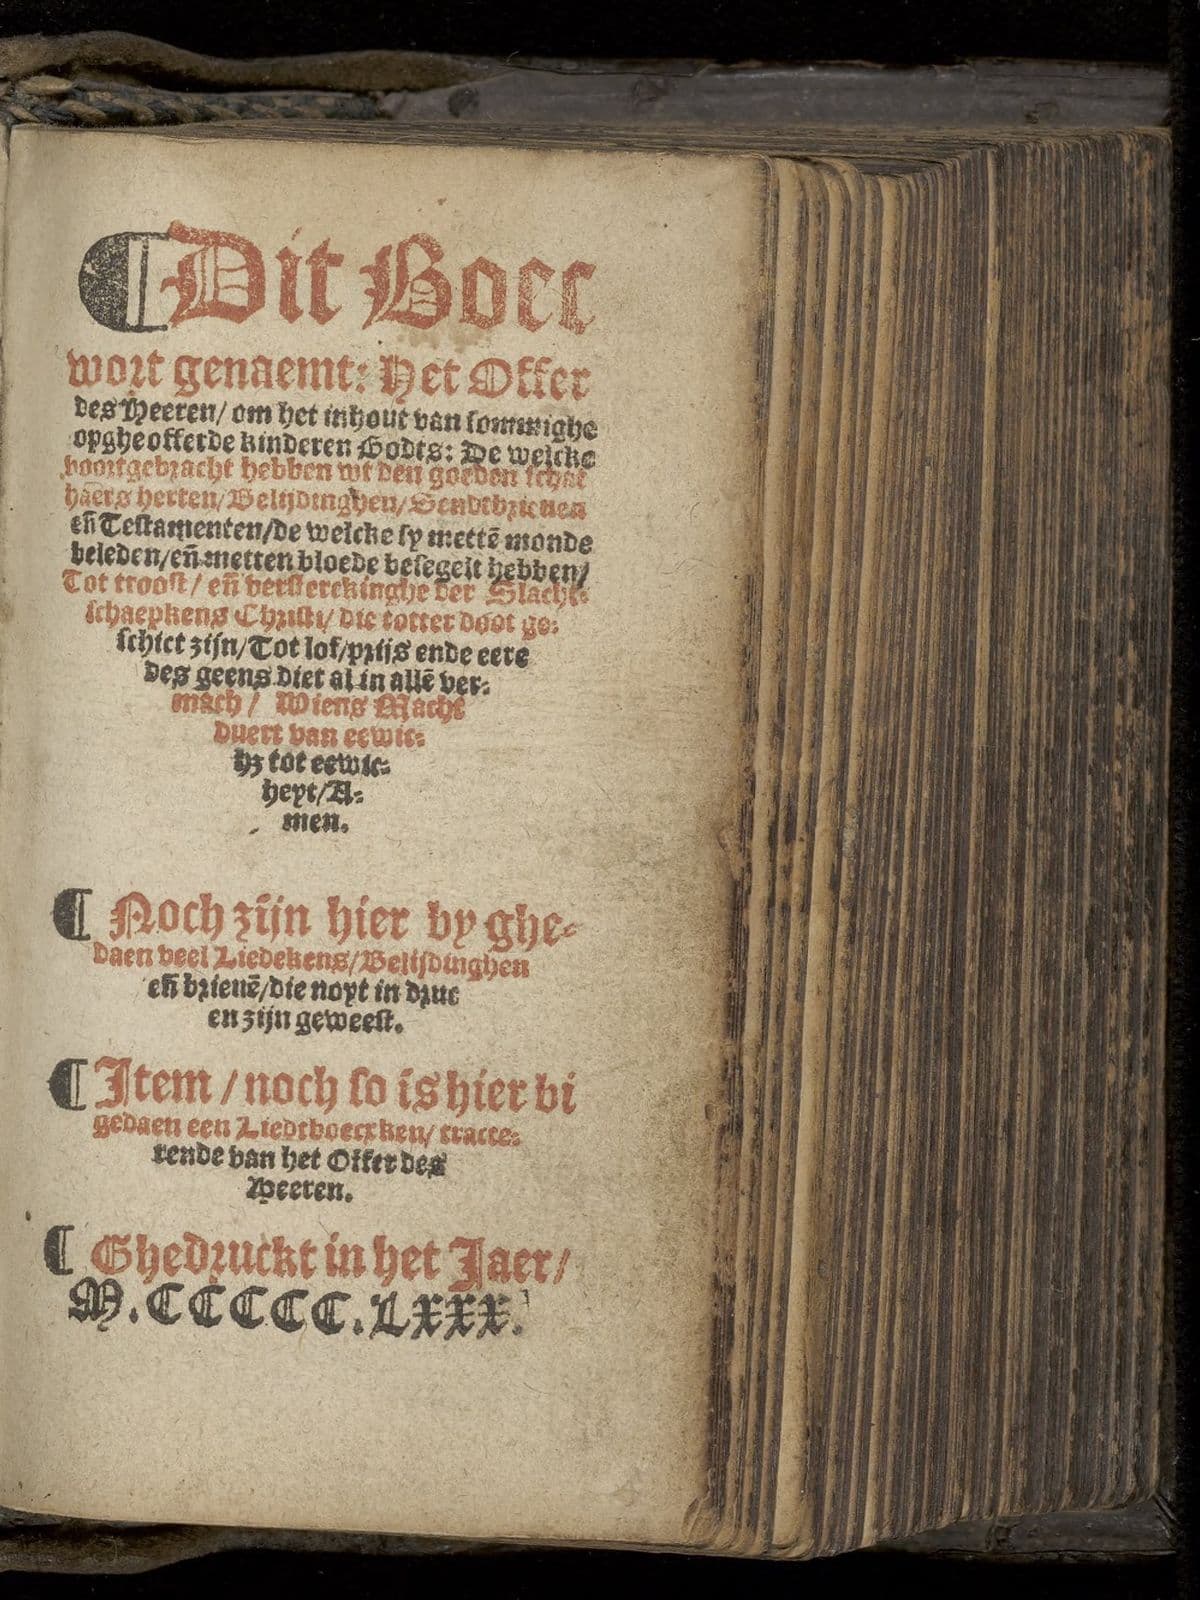 ¶ Dit Boec
wort genaemt: Het Offer
des Heeren/ om het inhout van sommighe
opgheofferde kinderen Godts: De welcke
voortgebracht hebben wt den goeden schat
haers herten/Belijdinghen/Sendtbrieuen
en̄ Testamenten/de welcke sy mettē monde
beleden/en̄ metten bloede besegelt hebben/
Tot troost/ en̄ versterckinghe der Slacht-
schaepkens Christi/ die totter doot ge-
schict zijn/Tot lof/prijs ende eere
des geens diet al in allē ver-
mach/ Wiens Macht
duert van eewic-
hz tot eewic-
heyt/A-
men.
¶ Noch zijn hier by ghe-
daen veel Liedekens/Belijdinghen
en̄ brieuē/die noyt in druc
en zijn geweest.
¶ Item / noch so is hier bi
gedaen een Liedtboecxken/ tracte-
rende van het Offer des
Heeren.
¶ Ghedruckt in het Jaer/
M.CCCCC.Lxxx.